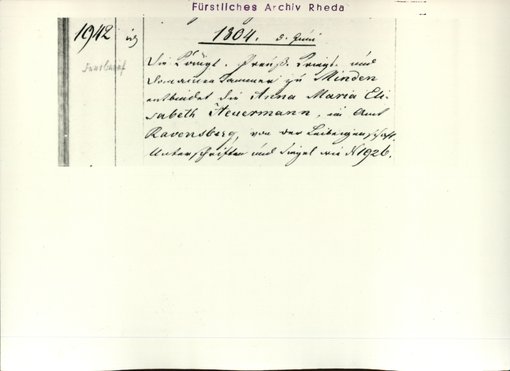 Fürstliches Archiv Rheda
1942
1804. 3. Juni
Die Königl. Preuß. Kriegs- und
Domainen Kammer zu Minden
entbindet die Anna Maria Eli-
sabeth Steuermann, im Amt
Ravensberg, von der Leibeigenschaft.
Unterschriften und Siegel wie N 1926.